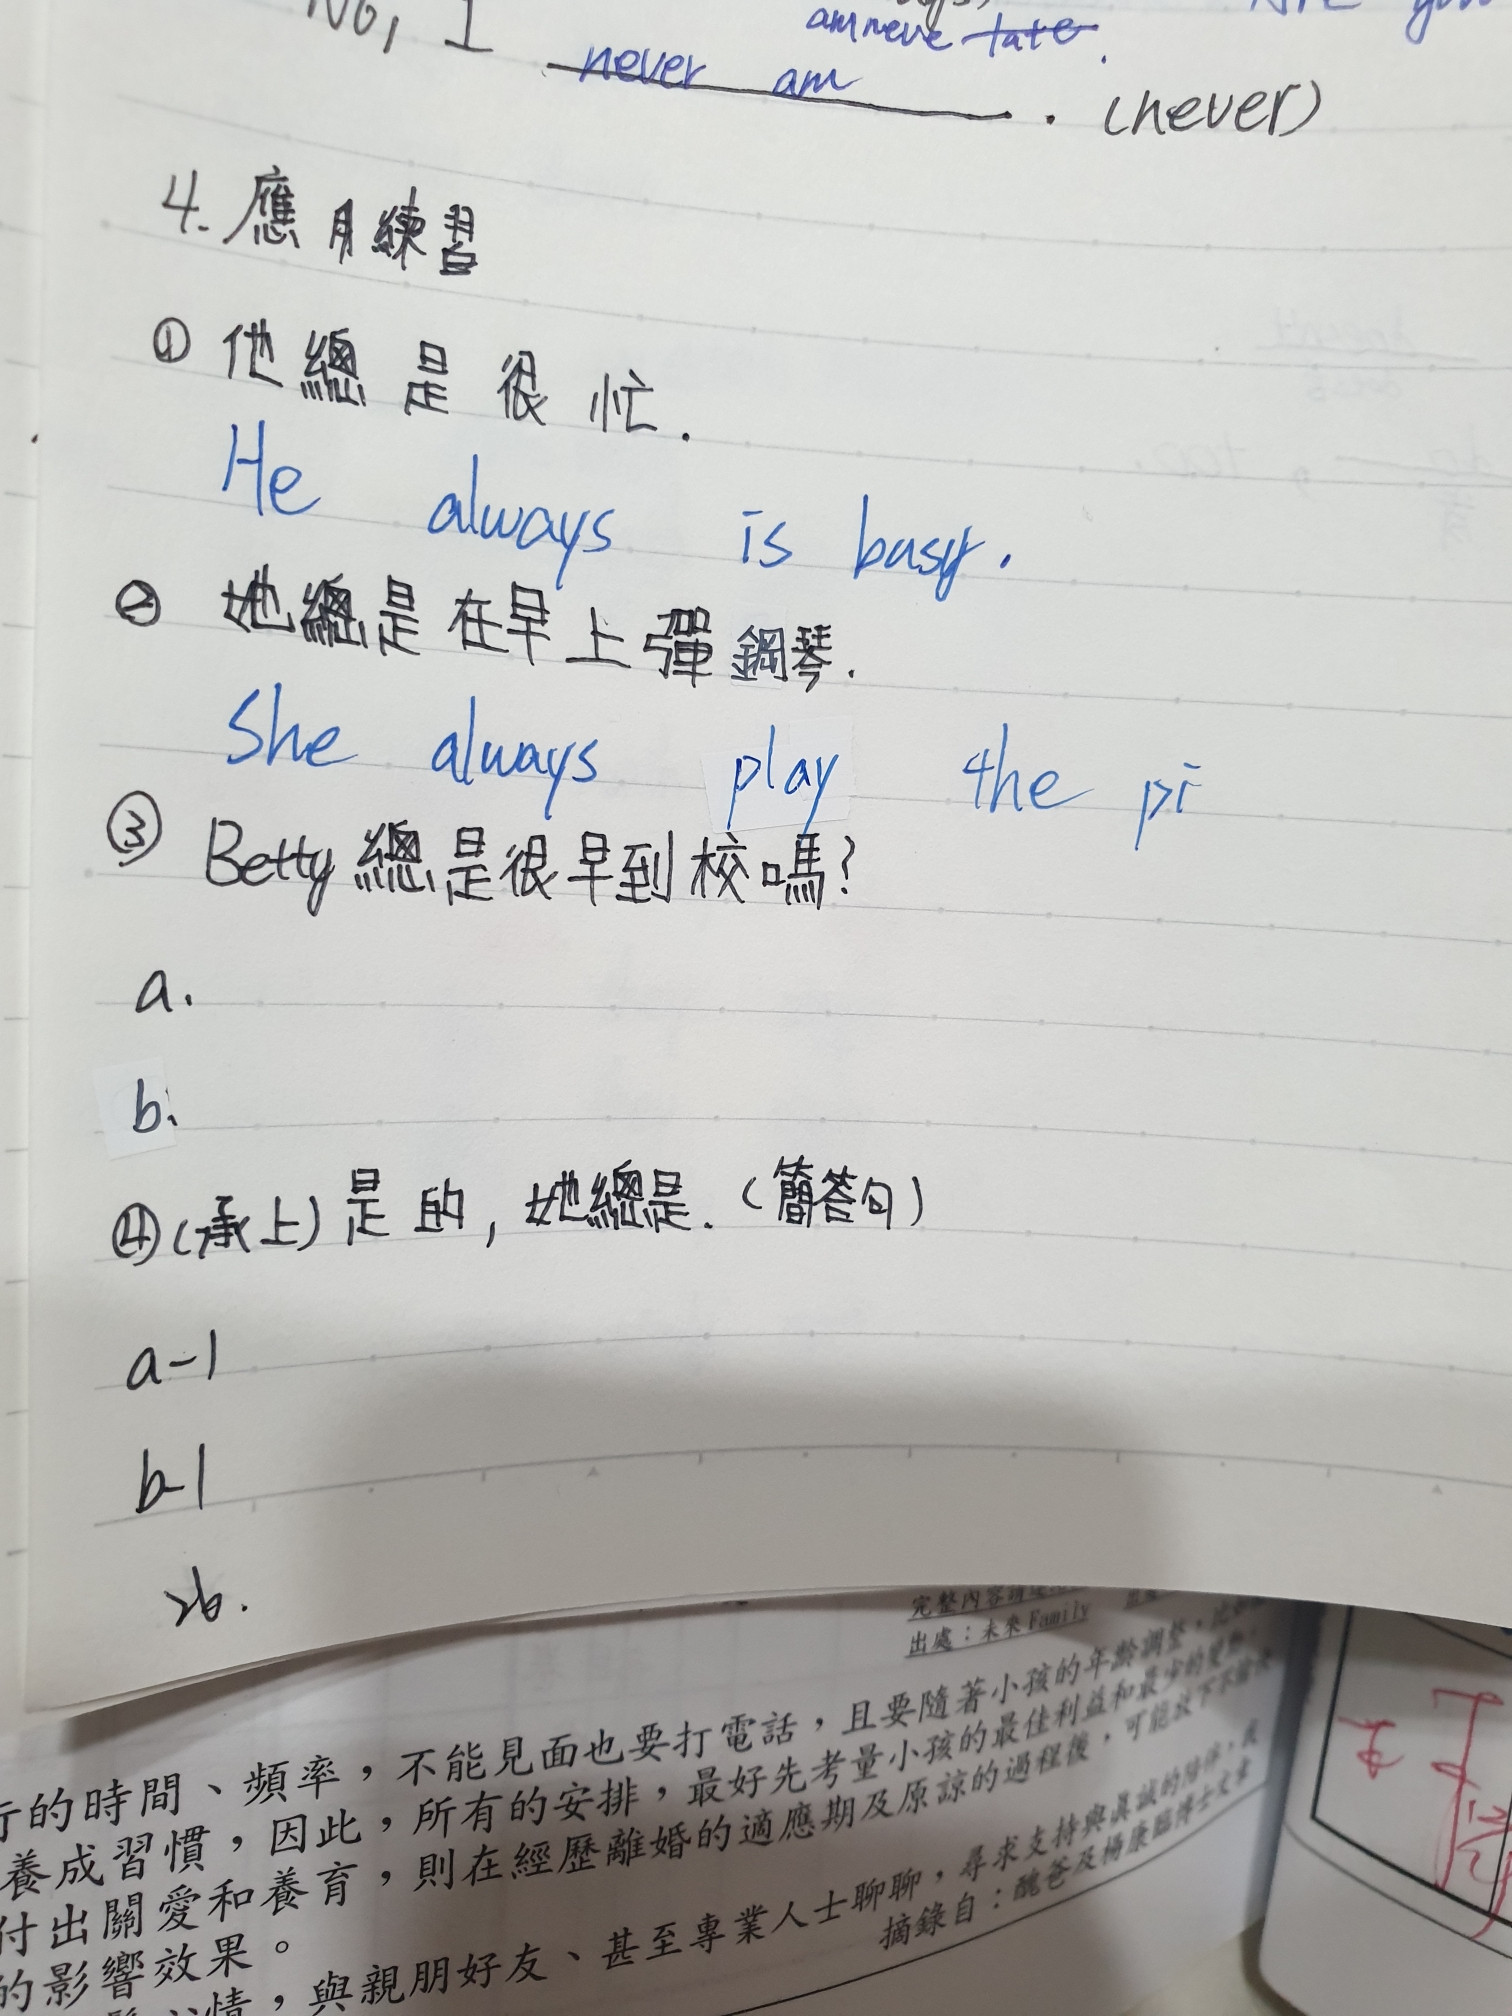 No, I never am . (never)
am neve late.
4. 應用練習
① 他總是很忙.
He always is busy.
② 她總是在早上彈鋼琴.
She always play the pi
③ Betty總是很早到校嗎?
a.
b.
④(承上)是的,她總是.(簡答句)
a-1
b-1
2b.
出處：未來Family
行的時間、頻率，不能見面也要打電話，且要隨著小孩的年齡調整，
養成習慣，因此，所有的安排，最好先考量小孩的最佳利益和最少的變動，
付出關愛和養育，則在經歷離婚的適應期及原諒的過程後，可能放下不愉快
的影響效果。
情，與親朋好友、甚至專業人士聊聊，尋求支持與真誠的陪伴，
摘錄自：醜爸及楊康臨博士文章